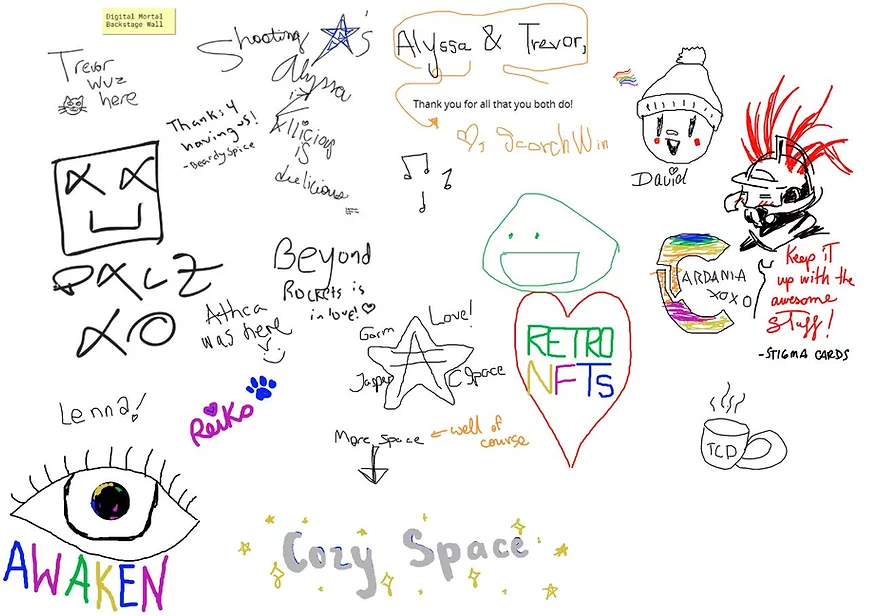 Digital Mortal
Backstage Wall
Trevor
wuz
here
Shooting 's
Alyssa
:)
Xllicious
is
delicious
Alyssa & Trevor,
Thank you for all that you both do!
ScorchWin
Thanks 4
having us!
-BeardySpice
David
PXLZ
XO
Beyond
Rockets is
in love!
Athca
was here
Love!
Gorm
Jasper
C Space
RETRO
NFTs
CARDANIA
XOXO
Keep it
up with the
awesome
stuff!
-STIGMA CARDS
Lenna!
Reiko
More space
well of
course
TCD
AWAKEN
Cozy Space